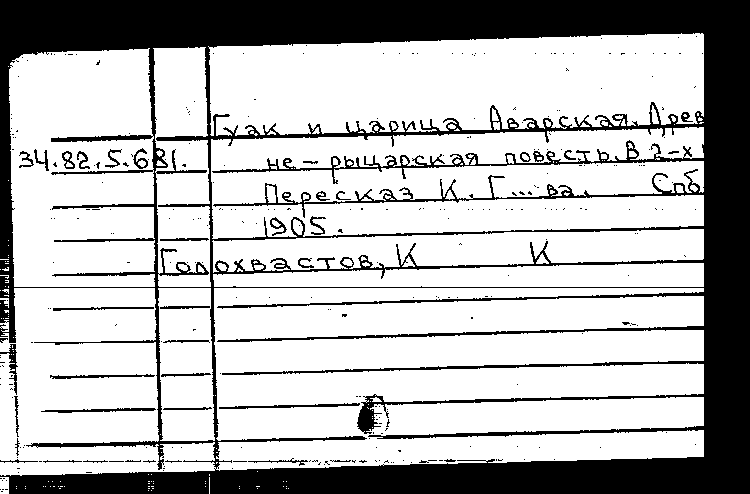 Гуак и царица Аварская. Древ
34.82.5.681. не-рыцарская повесть. В 2-х
Пересказ К. Г...ва. Спб
1905.
Голохвастов, К К